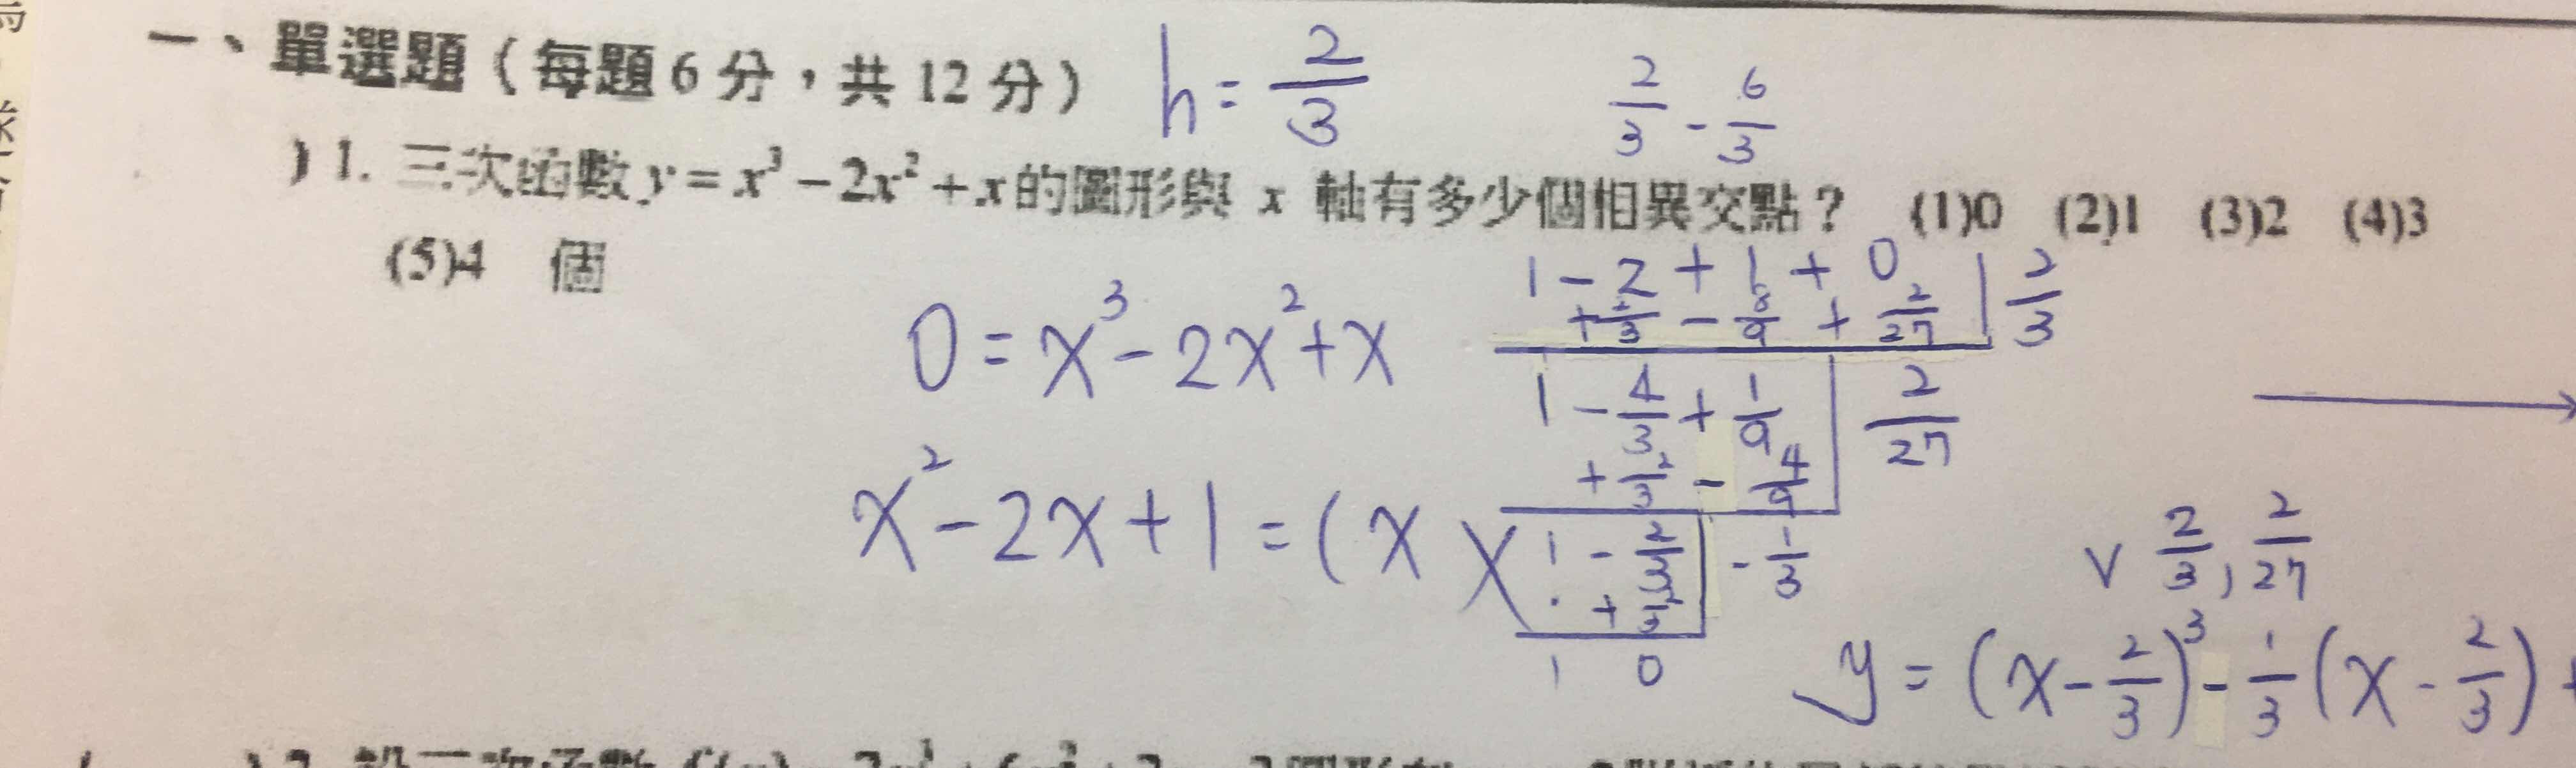 一、單選題（每題 6 分，共 12 分）
h = 2/3
2/3 - 6/3
) 1. 三次函數 y = x³ − 2x² + x 的圖形與 x 軸有多少個相異交點？ (1)0 (2)1 (3)2 (4)3
(5)4 個
0 = x³ - 2x² + x
x² - 2x + 1 = (x
1 - 2 + 1 + 0 | 2/3
+ 2/3 - 8/9 + 2/27
1 - 4/3 + 1/9 | 2/27
+ 2/3 - 4/9
1 - 2/3 | - 1/3
+ 2/3
1 0
→
v 2/3, 2/27
y = (x - 2/3)³ - 1/3 (x - 2/3) +